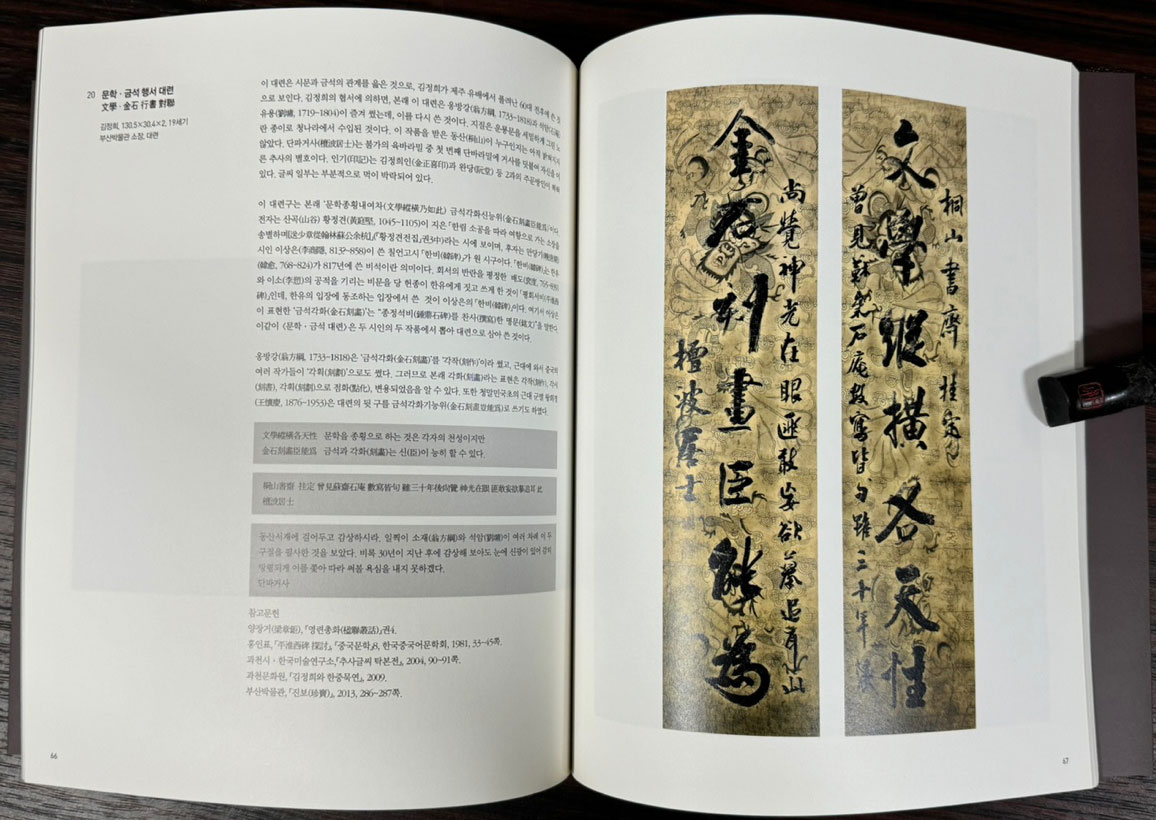 20 문학·금석 행서 대련
文學·金石 行書 對聯
김정희, 130.5×30.4×2, 19세기
부산박물관 소장, 대련
이 대련은 시문과 금석의 관계를 읊은 것으로, 김정희가 제주 유배에서 풀려난 60대 전후에 쓴 것
으로 보인다. 김정희의 협서에 의하면, 본래 이 대련은 옹방강(翁方綱, 1733~1818)과 석암(石庵)
유용(劉墉, 1719~1804)이 즐겨 썼는데, 이를 다시 쓴 것이다. 지질은 운룡문을 세밀하게 그린 노
란 종이로 청나라에서 수입된 것이다. 이 작품을 받은 동산(桐山)이 누구인지는 아직 밝혀지지
않았다. 단파거사(檀波居士)는 불가의 육바라밀 중 첫 번째 단바라밀에 거사를 덧붙여 자신을 이
른 추사의 별호이다. 인기(印記)는 김정희인(金正喜印)과 완당(阮堂) 등 2과의 주문방인이 찍혀
있다. 글씨 일부는 부분적으로 먹이 박락되어 있다.
이 대련구는 본래 '문학종횡내여차(文學縱橫乃如此) 금석각화신능위(金石刻畵臣能爲)'이다.
전자는 산곡(山谷) 황정견(黃庭堅, 1045~1105)이 지은 「한림 소공을 따라 여항으로 가는 소장을
송별하며[送少章從翰林蘇公余杭]」(『황정견전집』권3中)라는 시에 보이며, 후자는 만당기(晩唐期)
시인 이상은(李商隱, 813?~858)이 쓴 칠언고시 「한비(韓碑)」가 원 시구이다. 「한비(韓碑)」는 한유
(韓愈, 768~824)가 817년에 쓴 비석이란 의미이다. 회서의 반란을 평정한 배도(裴度, 765~839)
와 이소(李愬)의 공적을 기리는 비문을 당 헌종이 한유에게 짓고 쓰게 한 것이 「평회서비(平淮西
碑)」인데, 한유의 입장에 동조하는 입장에서 쓴 것이 이상은의 「한비(韓碑)」이다. 여기서 이상은
이 표현한 '금석각화(金石刻畵)'는 "종정석비(鍾鼎石碑)를 찬사(撰寫)한 명문(銘文)"을 말한다.
이같이 〈문학·금석 대련〉은 두 시인의 두 작품에서 뽑아 대련으로 삼아 쓴 것이다.
옹방강(翁方綱, 1733~1818)은 '금석각화(金石刻畵)'를 '각작(刻作)'이라 썼고, 근대에 와서 중국의
여러 작가들이 '각획(刻劃)'으로도 썼다. 그러므로 본래 각화(刻畵)라는 표현은 각작(刻作), 각서
(刻書), 각획(刻劃)으로 점화(點化), 변용되었음을 알 수 있다. 또한 청말민국초의 근대 군벌 왕회경
(王懷慶, 1876~1953)은 대련의 뒷 구를 금석각화기능위(金石刻畵豈能爲)로 쓰기도 하였다.
文學縱橫各天性 문학을 종횡으로 하는 것은 각자의 천성이지만
金石刻畵臣能爲 금석과 각화(刻畵)는 신(臣)이 능히 할 수 있다.
桐山書齋 挂定 曾見蘇齋石庵 數寫皆句 雖三十年後尙覺 神光在眼 匪敢妄欲摹追耳 此
檀波居士
동산서재에 걸어두고 감상하시라. 일찍이 소재(翁方綱)와 석암(劉墉)이 여러 차례 이 두
구절을 필사한 것을 보았다. 비록 30년이 지난 후에 감상해 보아도 눈에 신광이 있어 감히
망령되게 이를 좇아 따라 써볼 욕심을 내지 못하겠다.
단파거사
참고문헌
양장거(梁章鉅), 『영련총화(楹聯叢話)』권4.
홍인표, 「平淮西碑 探討」, 『중국문학』8, 한국중국어문학회, 1981, 33~45쪽.
과천시·한국미술연구소, 『추사글씨 탁본전』, 2004, 90~91쪽.
과천문화원, 『김정희와 한중묵연』, 2009.
부산박물관, 『진보(珍寶)』, 2013, 286~287쪽.
66
桐山書齋 挂定
文學縱橫各天性
曾見蘇齋石庵數寫皆句雖三十年後
尚覺神光在眼匪敢妄欲摹追耳
金石刻畫臣能爲
檀波居士
67